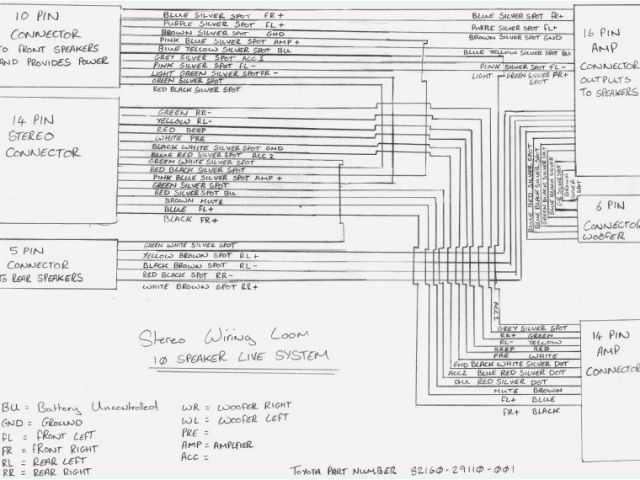 10 PIN
CONNECTOR
TO FRONT SPEAKERS
AND PROVIDES POWER
BLUE SILVER SPOT FR+
PURPLE SILVER SPOT FL+
BROWN SILVER SPOT GND
PINK BLUE SILVER SPOT AMP+
BLUE YELLOW SILVER SPOT BU
GREY SILVER SPOT ACC1
PINK SILVER SPOT FL-
LIGHT GREEN SILVER SPOT FR-
GREEN SILVER SPOT
RED BLACK SILVER SPOT
BLUE SILVER SPOT FR+
PURPLE SILVER SPOT FL+
BROWN SILVER SPOT GND
BLUE YELLOW SILVER SPOT BU
PINK SILVER SPOT FL-
LIGHT GREEN SILVER SPOT FR+
16 PIN
AMP
CONNECTOR
OUTPUTS
TO SPEAKERS
14 PIN
STEREO
CONNECTOR
GREEN RR-
YELLOW RL-
RED BEEP
WHITE PRE
BLACK WHITE SILVER SPOT GND
BLUE RED SILVER SPOT ACC2
GREEN WHITE SILVER SPOT
RED BLACK SILVER SPOT
PINK BLUE SILVER SPOT AMP+
GREEN SILVER SPOT
RED SILVER SPOT BU
BROWN MUTE
BLUE FL+
BLACK FR+
BLUE RED SILVER SPOT
BLUE BLACK SILVER SPOT
6 PIN
CONNECTOR
WOOFER
5 PIN
CONNECTOR
TO REAR SPEAKERS
GREEN WHITE SILVER SPOT
YELLOW BROWN SPOT RL+
BLACK BROWN SPOT RL-
RED BLACK SPOT RR-
WHITE BROWN SPOT RR+
ACC1
GREY SILVER SPOT
RR+ GREEN
RL- YELLOW
BEEP RED
PRE WHITE
GND BLACK WHITE SILVER DOT
ACC2 BLUE RED SILVER DOT
BU RED SILVER DOT
MUTE BROWN
FL+ BLUE
FR+ BLACK
14 PIN
AMP
CONNECTOR
Stereo Wiring Loom
10 SPEAKER LIVE SYSTEM
BU = Battery Uncontrolled
GND = GROUND
FL = FRONT LEFT
FR = FRONT RIGHT
RL = REAR LEFT
RR = REAR RIGHT
WR = WOOFER RIGHT
WL = WOOFER LEFT
PRE =
AMP = AMPLFIER
ACC =
TOYOTA PART NUMBER 82160-29110-001